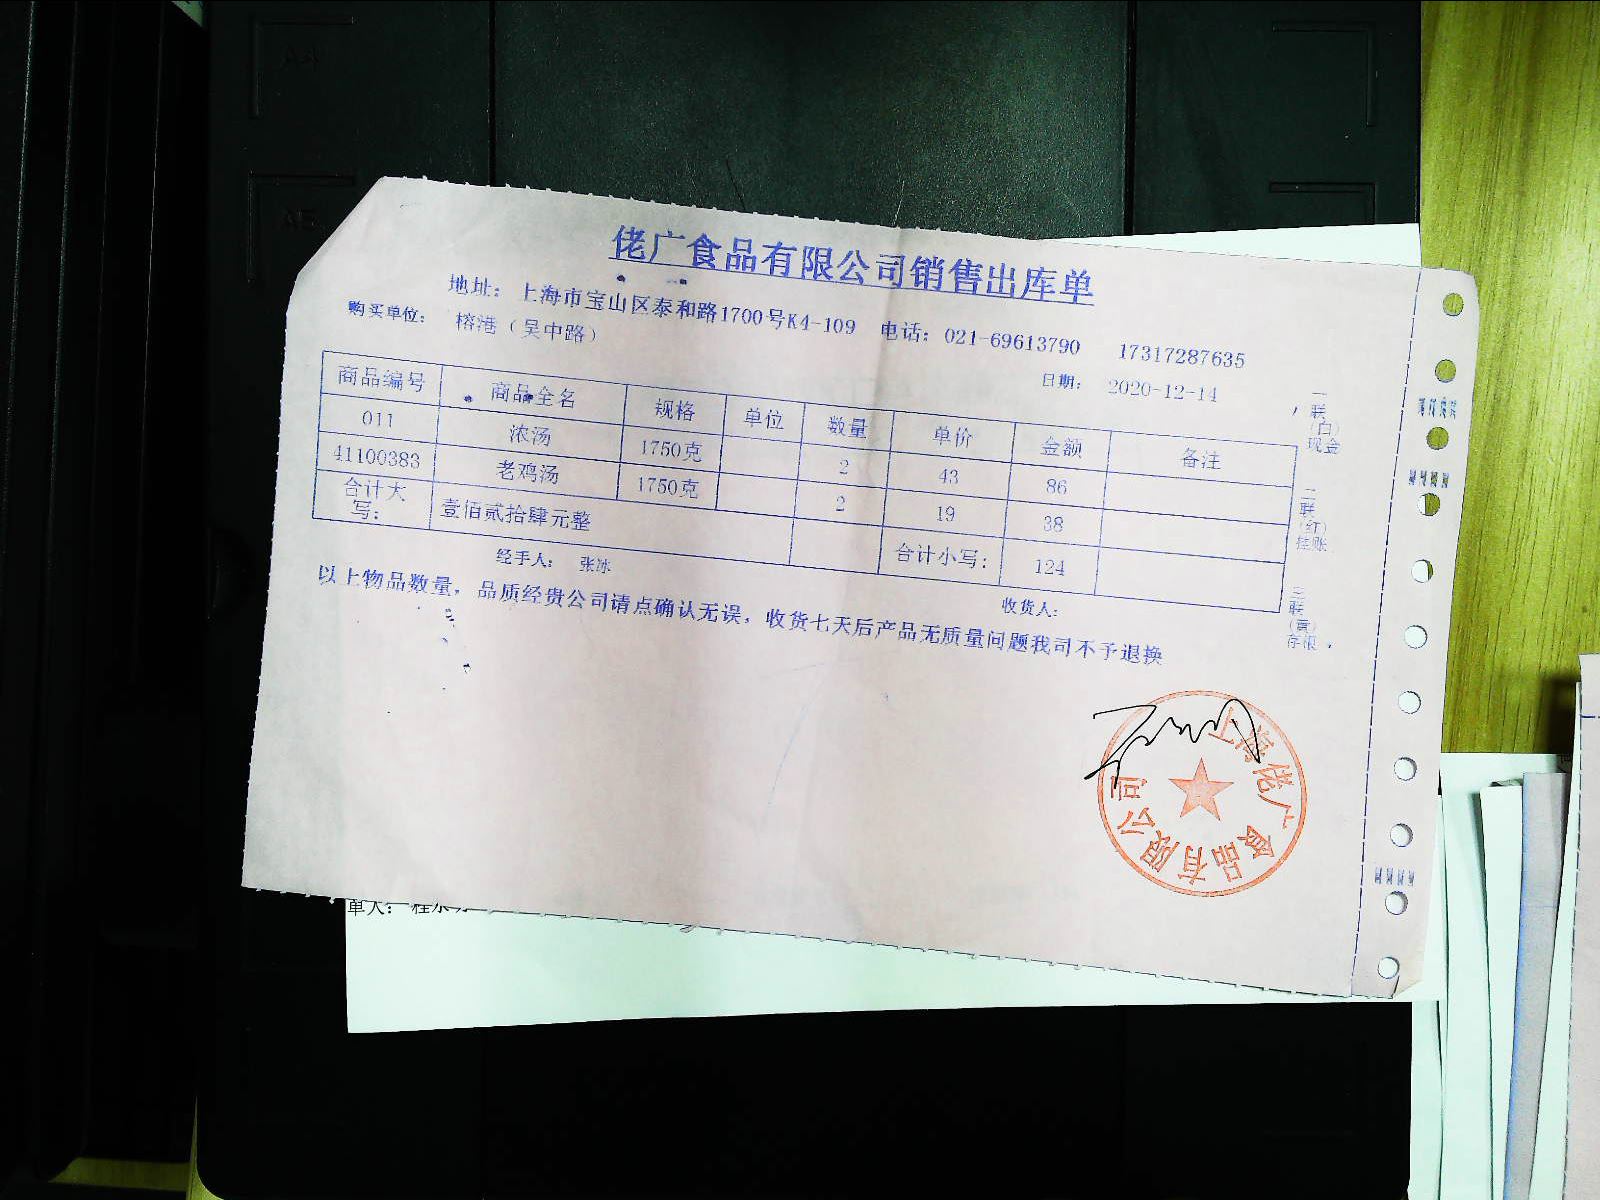 佬广食品有限公司销售出库单
地址： 上海市宝山区泰和路1700号K4-109 电话：021-69613790 17317287635
购买单位： 榕港（吴中路）
日期： 2020-12-14
商品编号 商品全名 规格 单位 数量 单价 金额 备注
011 浓汤 1750克 2 43 86
41100383 老鸡汤 1750克 2 19 38
合计大写： 壹佰贰拾肆元整 合计小写： 124
经手人： 张冰 收货人：
以上物品数量，品质经贵公司请点确认无误，收货七天后产品无质量问题我司不予退换
一联（白）现金
二联（红）挂账
三联（黄）存根
上海佬广食品有限公司
单人：
A4
A5